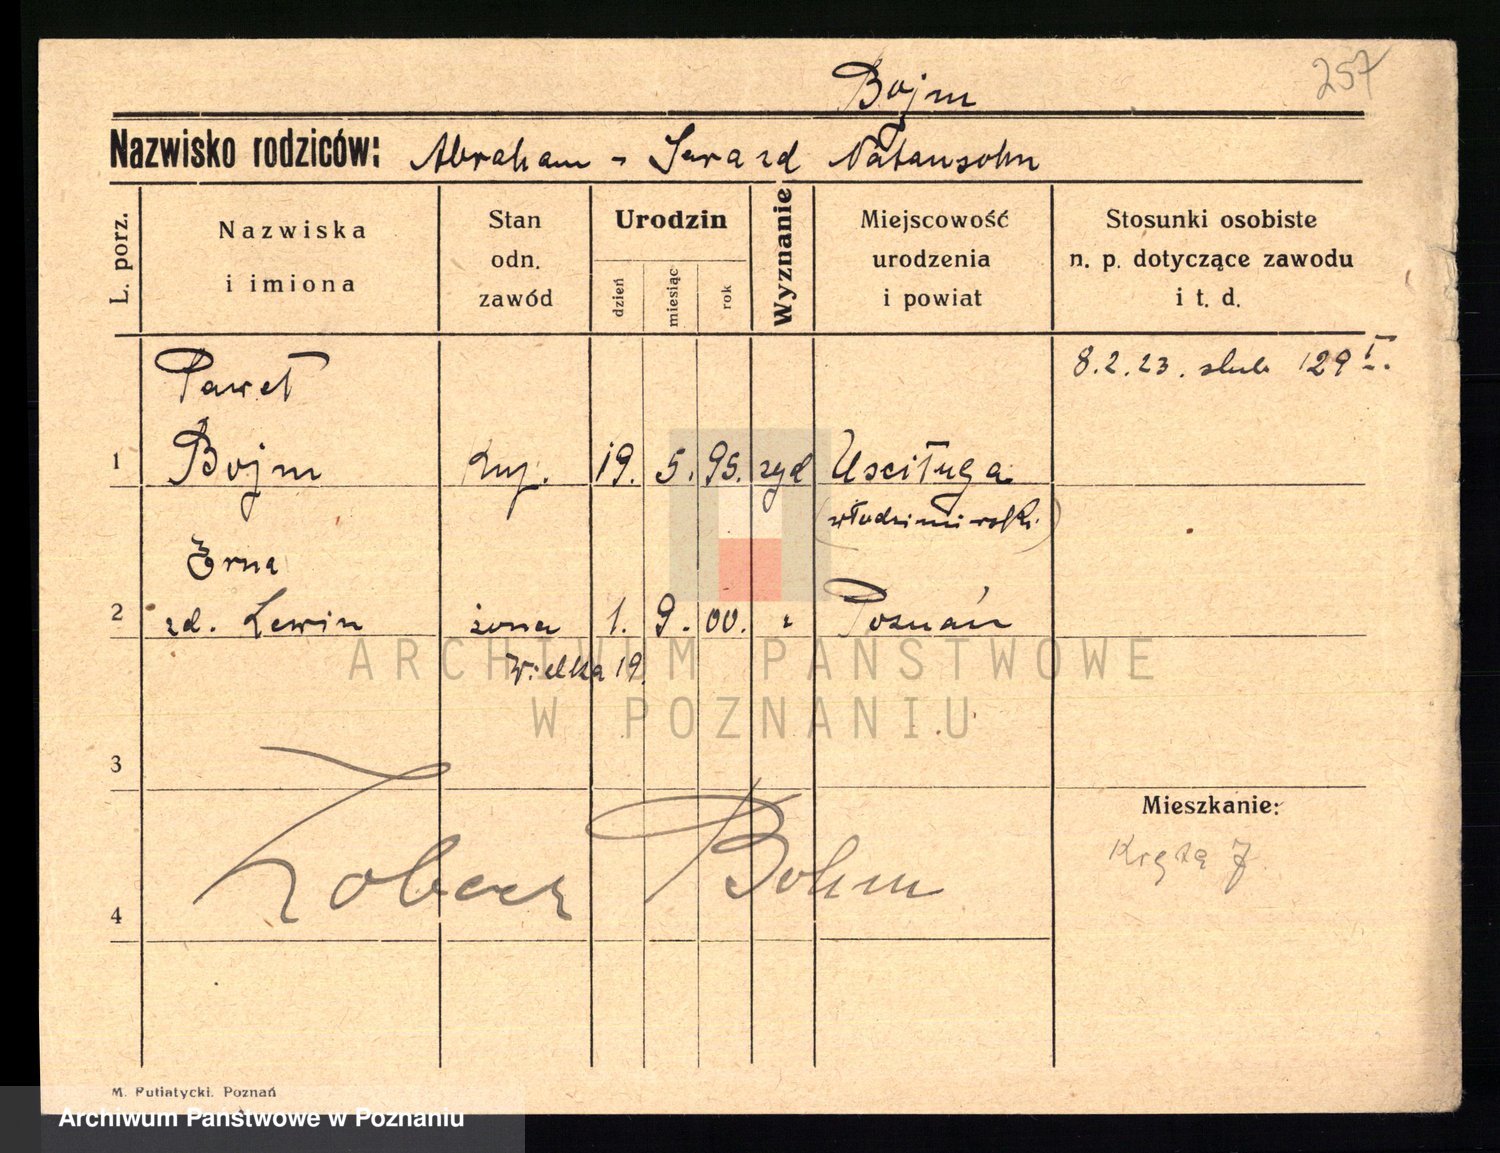 257
Bojm
Nazwisko rodziców: Abraham - Sura zd Natansohn
L. porz.
Nazwiska i imiona
Stan odn. zawód
Urodzin
dzień
miesiąc
rok
Wyznanie
Miejscowość urodzenia i powiat
Stosunki osobiste n. p. dotyczące zawodu i t. d.
8.2.23. slub 129 I.
Paweł
1 Bojm kup. 19. 5. 95. żyd Usciługa
(włodzimirski)
Erna
2 zd. Lewin żona 1. 9. 00. " Poznań
Wielka 19.
ARCHIWUM PAŃSTWOWE
W POZNANIU
3
Mieszkanie:
Zobacz Bohm
4
M. Putiatycki. Poznań
Archiwum Państwowe w Poznaniu